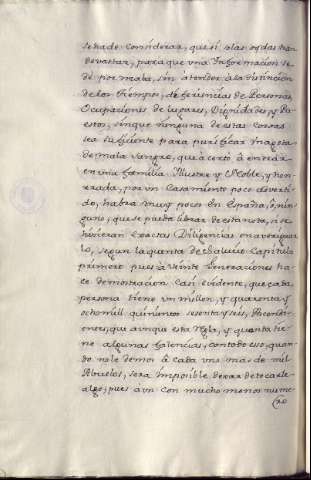 se ha de considerar, que si a las oydas han
de vastar, para que vna Informacion se
dé por mala, sin atender à la distincion
de los tiempos, diferiencias de Personas,
Ocupaciones de lugares, Dignidades, y Pu-
estos, sin que ninguna de estas cossas
sea suficiente para purificar una gota
de mala sangre, que acertó à entrar
en vna familia Illustre, y Noble, y hon-
rrada, por vn Casamiento poco adverti-
do, habra muy pocos en España, ó nin-
guno, que se pueda librar de esta nota, si se
hicieran exactas Diligencias en averiguar
lo, segun la quenta de Salucio Capitulo
primero pues à veinte Generaciones ha-
ce demostracion casi evidente, que cada
persona tiene vn millon, y quarenta y
ocho mill quinientos sesenta y seis, Ascendi-
entes, que aunque esta regla, y quenta tie-
ne algunas falencias, con todo esso, quan-
do no le demos à cada vno mas de mil
Abuelos, sera imposible dexar de tocarle
algo; pues aun con mucho menos nume-
ro